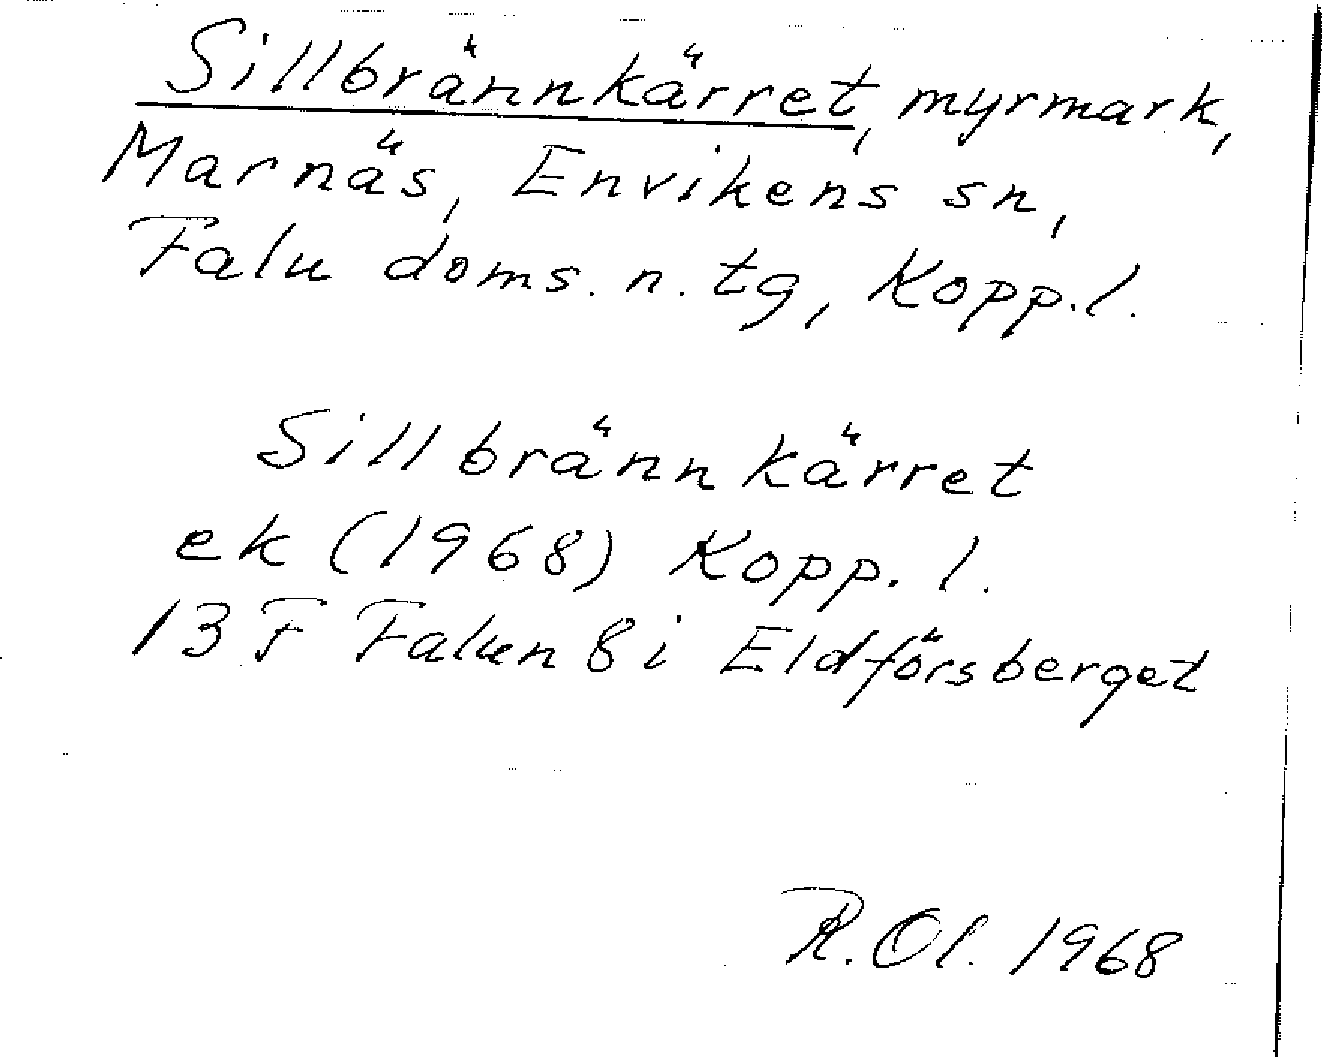 Sillbrännkärret, myrmark,
Marnäs, Envikens sn,
Falu doms. n. tg, Kopp.l.
Sillbrännkärret
ek (1968) Kopp. l.
13 F Falun 8 i Eldförsberget
R.Ol. 1968